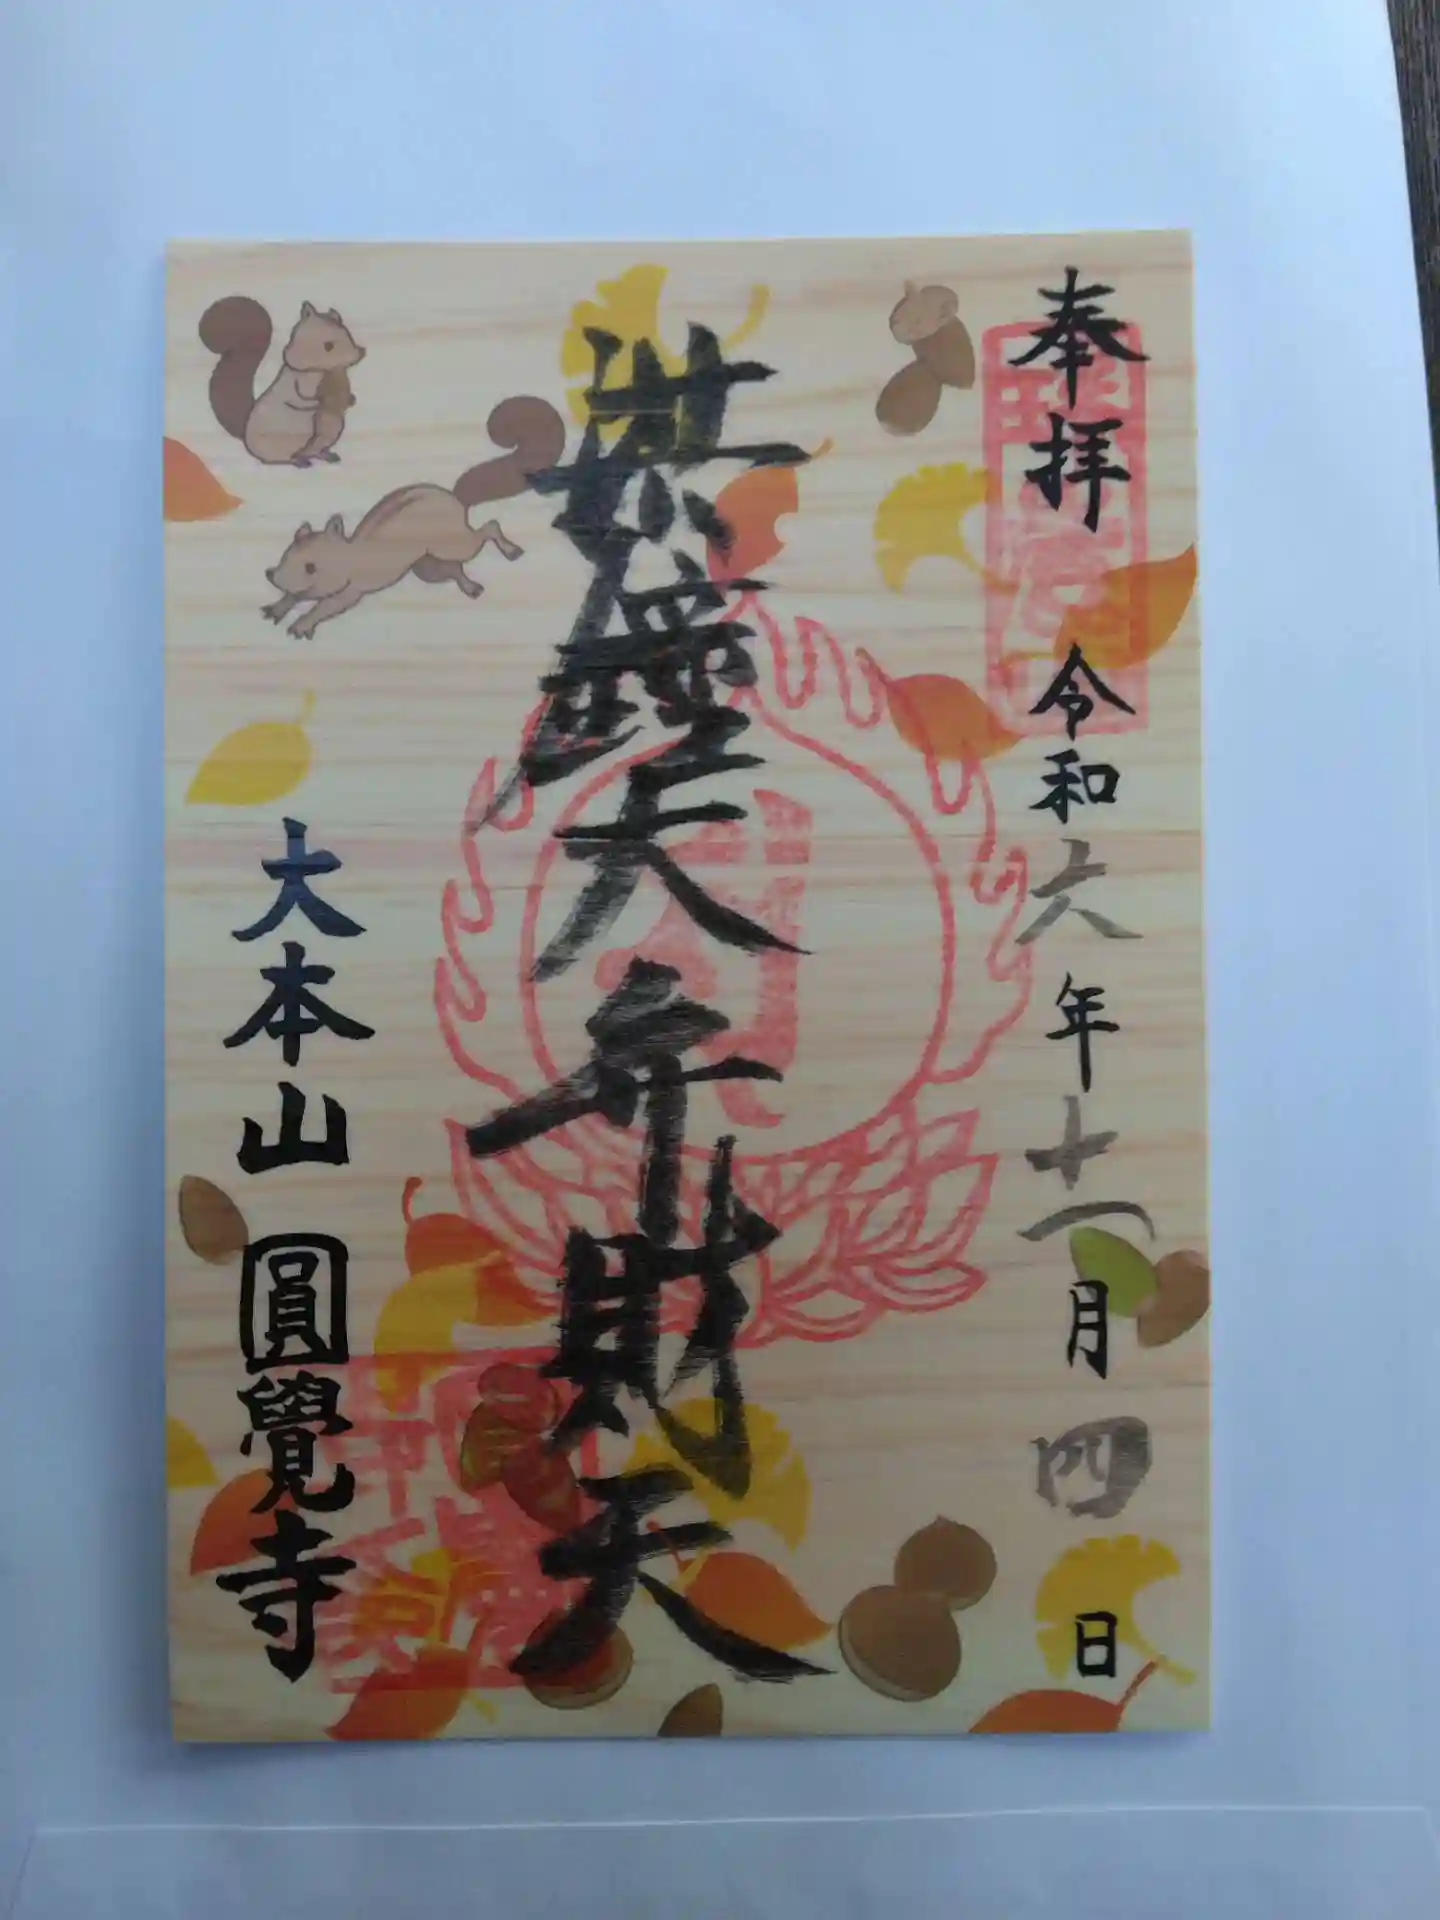 奉拝 令和六年十一月四日
洪鐘大弁財天
大本山 圓覺寺